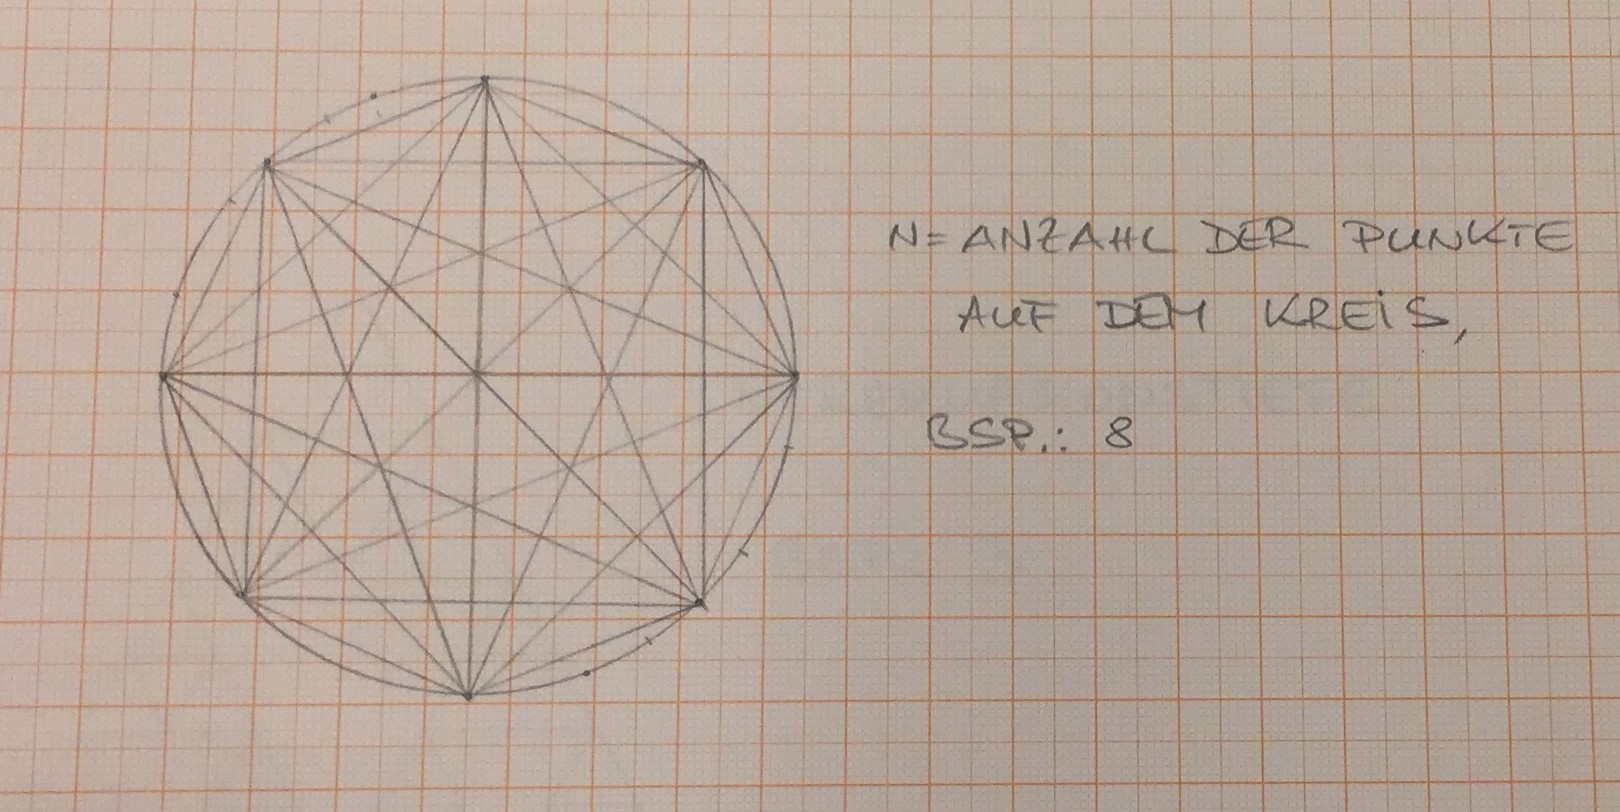 N= ANZAHL DER PUNKTE
AUF DEM KREiS,
BSP.: 8